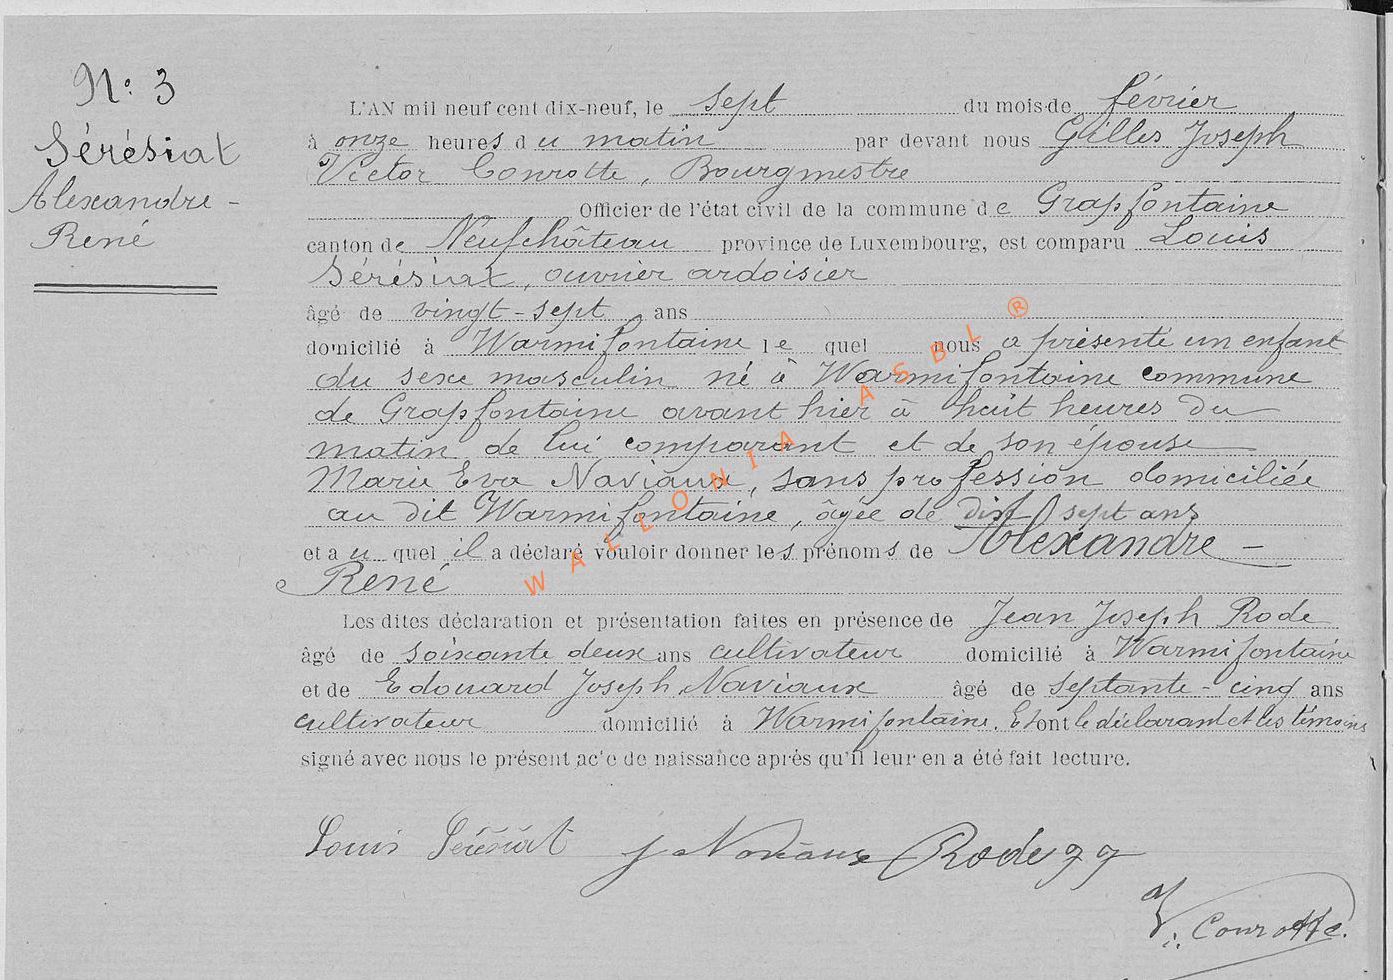 N° 3
Sérésiat
Alexandre -
René
L'AN mil neuf cent dix-neuf, le sept du mois de février
à onze heures du matin par devant nous Gilles Joseph
Victor Conrotte, Bourgmestre
Officier de l'état civil de la commune de Grapfontaine
canton de Neufchâteau province de Luxembourg, est comparu Louis
Sérésiat, ouvrier ardoisier
âgé de vingt-sept ans
domicilié à Warmifontaine lequel nous a présenté un enfant
du sexe masculin né à Warmifontaine commune
de Grapfontaine avant hier à huit heures du
matin de lui comparant et de son épouse
Marie Eva Naviaux, sans profession domiciliée
au dit Warmifontaine, âgée de dix sept ans
et auquel il a déclaré vouloir donner les prénoms de Alexandre -
René
Les dites déclaration et présentation faites en présence de Jean Joseph Rode
âgé de soixante deux ans cultivateur domicilié à Warmifontaine
et de Edouard Joseph Naviaux âgé de septante-cinq ans
cultivateur domicilié à Warmifontaine. Et ont le déclarant et les témoins
signé avec nous le présent acte de naissance après qu'il leur en a été fait lecture.
Louis Sérésiat J Naviaux Rode JJ
V. Conrotte.
WALLONIA ASBL ®